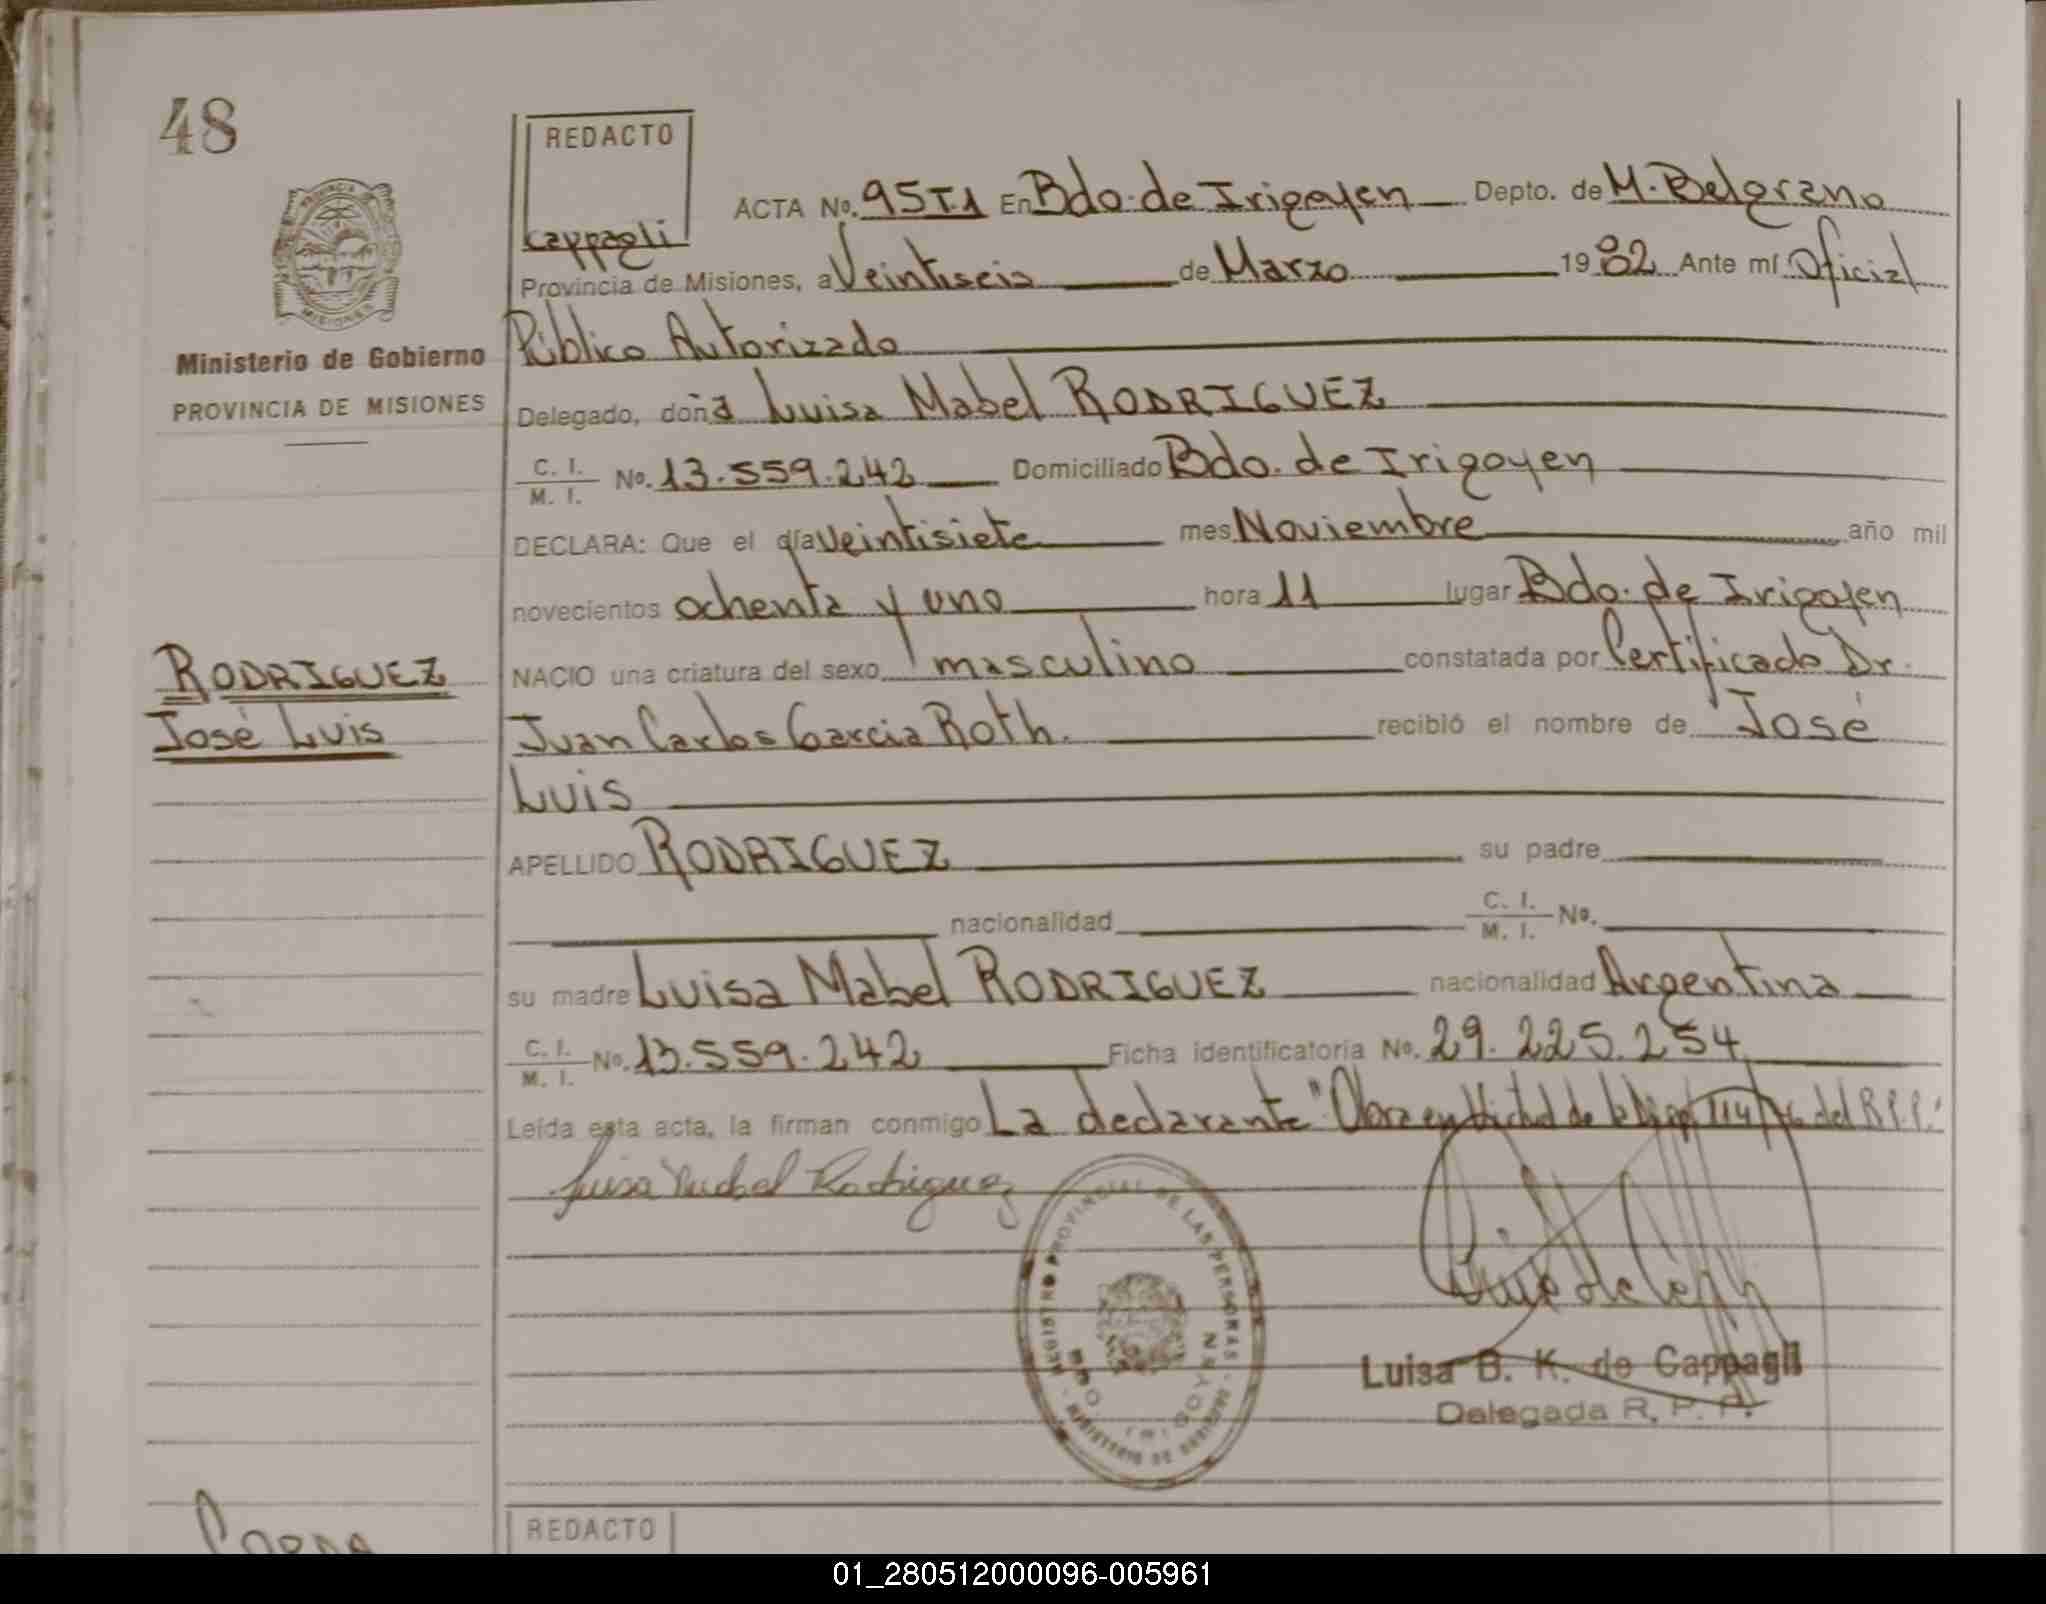 48
REDACTO
Cappagli
ACTA No. 95T1 En Bdo. de Irigoyen Depto. de M. Belgrano
Provincia de Misiones, a Veintiseis de Marzo 1982 Ante mí Oficial
Público Autorizado
Ministerio de Gobierno
PROVINCIA DE MISIONES
Delegado, doña Luisa Mabel RODRIGUEZ
C. I. / M. I. No. 13.559.242 Domiciliado Bdo. de Irigoyen
DECLARA: Que el día veintisiete mes Noviembre año mil
novecientos ochenta y uno hora 11 lugar Bdo. de Irigoyen
RODRIGUEZ
José Luis
NACIO una criatura del sexo masculino constatada por Certificado Dr.
Juan Carlos Garcia Roth. recibió el nombre de José
Luis
APELLIDO RODRIGUEZ su padre
nacionalidad C. I. / M. I. No.
su madre Luisa Mabel RODRIGUEZ nacionalidad Argentina
C. I. / M. I. No. 13.559.242 Ficha identificatoria No. 29.225.254
Leída esta acta, la firman conmigo La declarante "Obra en Virtud de la 114/76 del R.P.P."
Luisa Mabel Rodriguez
REGISTRO PROVINCIAL DE LAS PERSONAS - MINISTERIO DE GOBIERNO
BDO. IRIGOYEN
Luisa B. K. de Cappagli
Delegada R. P. P.
REDACTO
01_280512000096-005961